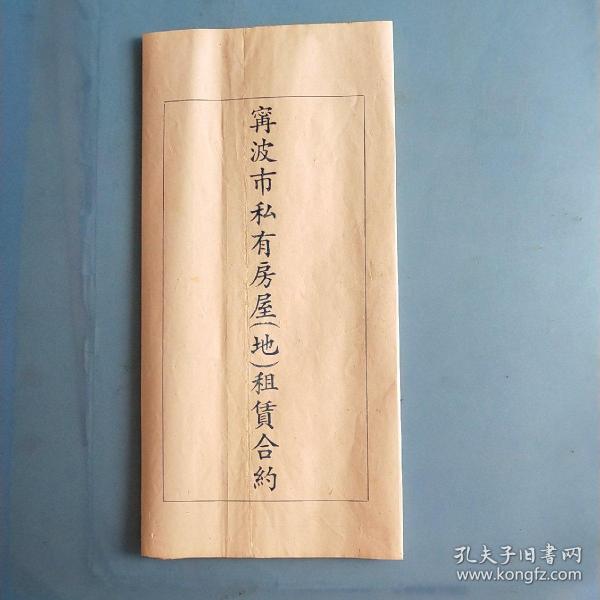 甯波市私有房屋(地)租賃合約
孔夫子旧书网
www.kongfz.com